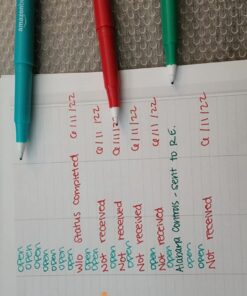 open
open
open
open
open
open
open
W/o status completed 6/11/22
open
open
Not received 6/11/22
open
Not received 6/11/22
open
Not received
open
Not received 6/11/22
Controls - sent to R.E.
open
open
Not received 6/11/22